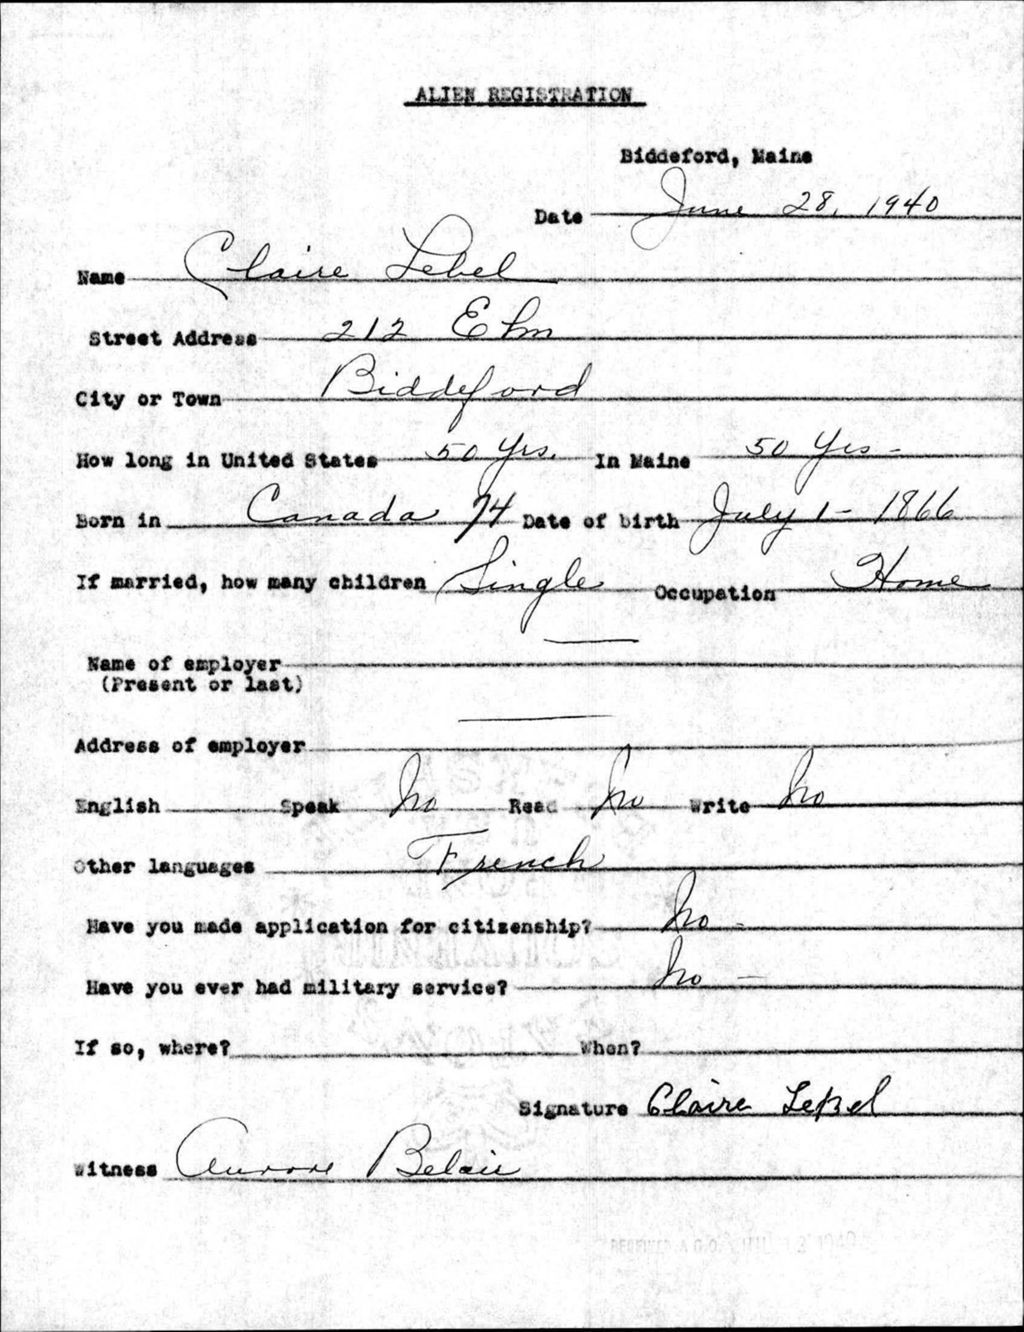 ALIEN REGISTRATION
Biddeford, Maine
Date June 28, 1940
Name Claire Lebel
Street Address 212 Elm
City or Town Biddeford
How long in United States 50 Yrs. In Maine 50 Yrs -
Born in Canada 74 Date of birth July 1 - 1866
If married, how many children Single Occupation Home
Name of employer
(Present or last)
Address of employer
English Speak No Read No Write No
Other languages French
Have you made application for citizenship? No -
Have you ever had military service? No -
If so, where? When?
Signature Claire Lebel
Witness Aurore Belair
RECEIVED A.G.O. JUL 12 1940